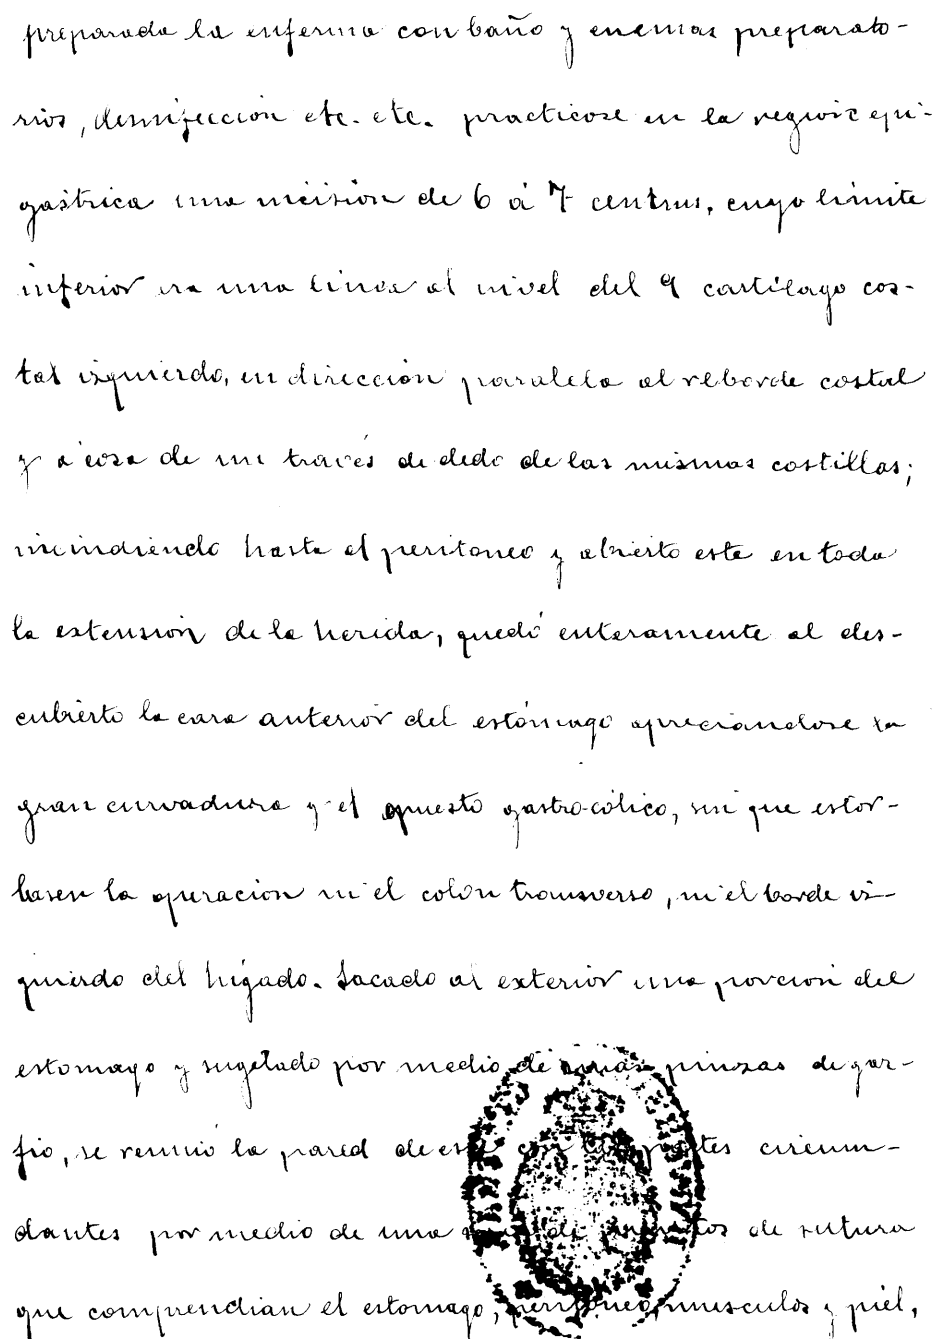 preparada la enferma con baño y enemas preparato-
rios, desinfección etc. etc. practicose en la región epi-
gástrica una incisión de 6 á 7 centms, cuyo límite
inferior era una linea al nivel del 9 cartílago cos-
tal izquierdo, en dirección paralela al reborde costal
y a cosa de un través de dedo de las mismas costillas;
incindiendo hasta el peritoneo y abierto este en toda
la extensión de la herida, quedó enteramente al des-
cubierto la cara anterior del estómago apreciandose la
gran curvadura y el epuesto gastro-cólico, sin que estor-
basen la operación ni el colon transverso, ni el borde iz-
quierdo del hígado. Sacado al exterior una porcion del
estomago y sugetado por medio de unas pinzas de gar-
fio, se reunió la pared de este con las partes circum-
dantes por medio de una de puntos de sutura
que comprendian el estomago, peritoneo, musculos y piel,